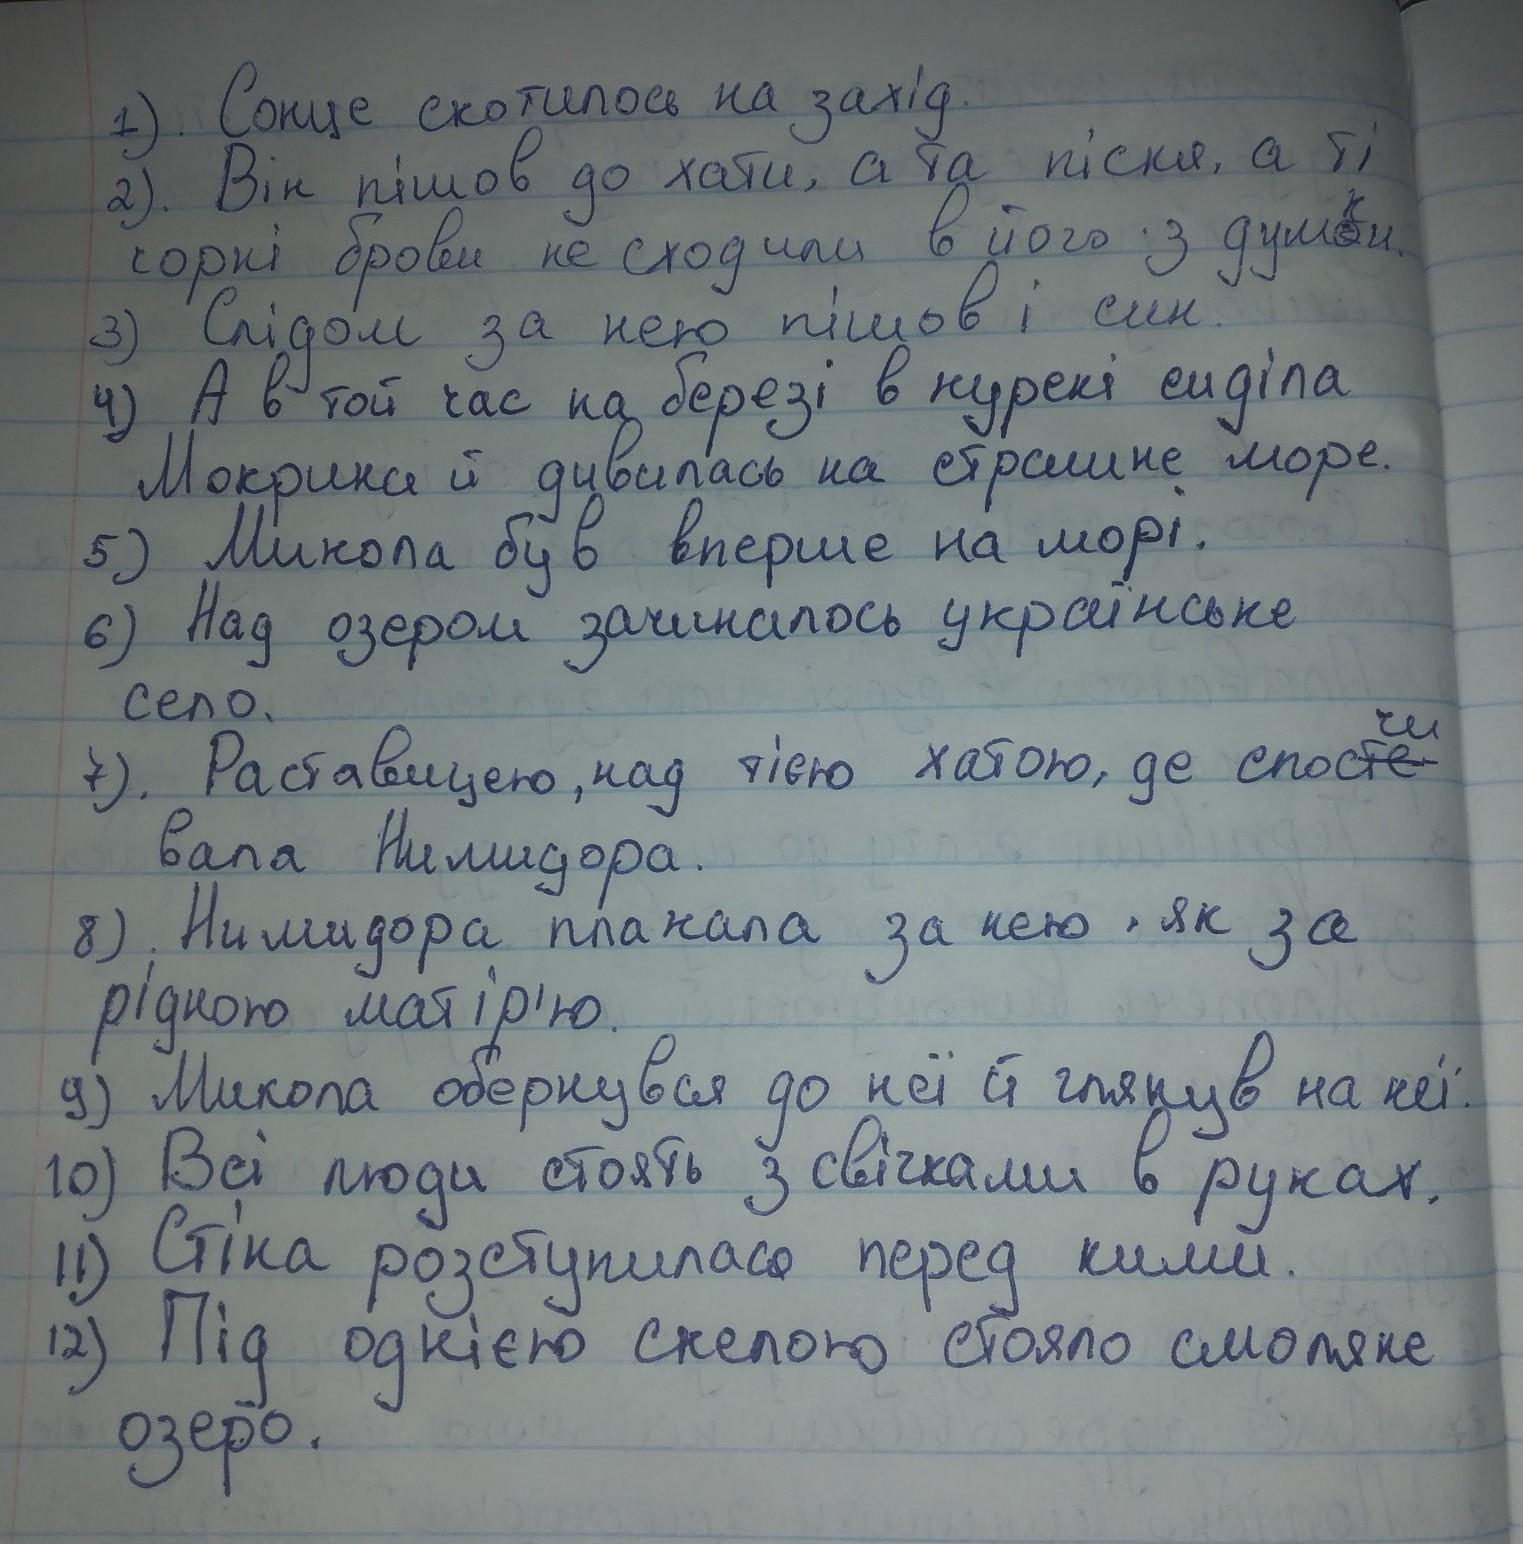 1). Сонце скотилось на захід.
2). Він пішов до хати, а та пісня, а ті
чорні брови не сходили в його з думки.
3) Слідом за нею пішов і син.
4) А в той час на березі в курені сиділа
Мокрина й дивилась на страшне море.
5) Микола був вперше на морі.
6) Над озером зачиналось українське
село.
7). Раставицею, над тією хатою, де спочи
вала Нимидора.
8). Нимидора плакала за нею, як за
рідною матір'ю.
9) Микола обернувся до неї й глянув на неї.
10) Всі люди стоять з свічками в руках.
11) Стіна розступилась перед ними.
12) Під однією скелою стояло смоляне
озеро.